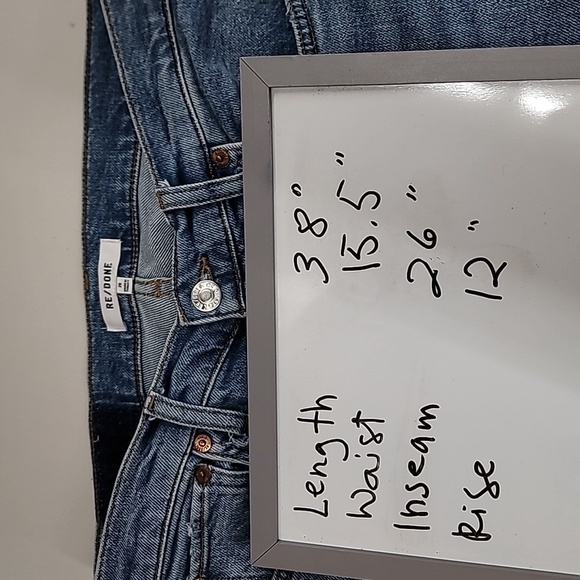 RE/DONE
Length 38"
Waist 15.5"
Inseam 26"
Rise 12"